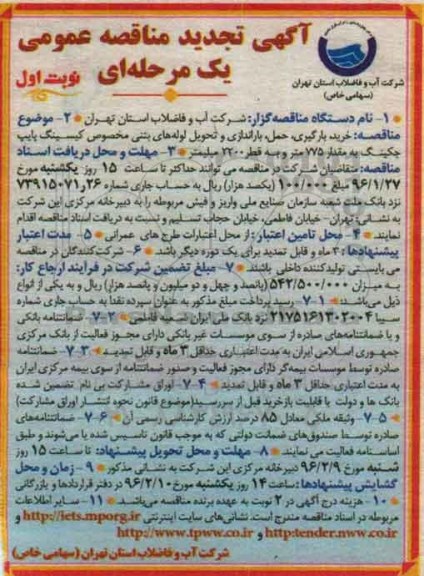 آگهی تجدید مناقصه عمومی
یک مرحله‌ای
نوبت اول
شرکت آب و فاضلاب استان تهران
(سهامی خاص)
۱- نام دستگاه مناقصه‌گزار: شرکت آب و فاضلاب استان تهران ۲- موضوع
مناقصه: خرید بارگیری، حمل، باراندازی و تحویل لوله‌های بتنی مخصوص کیسینگ پایپ
جکینگ به مقدار ۷۷۵ متر و به قطر ۲۲۰۰ میلیمتر ۳- مهلت و محل دریافت اسناد
مناقصه: متقاضیان شرکت در مناقصه می توانند حداکثر تا ساعت ۱۵ روز یکشنبه مورخ
۹۶/۱/۲۷ مبلغ ۱۰۰/۰۰۰ (یکصد هزار) ریال به حساب جاری شماره ۲۶ و ۷۳۹۱۵۰۷۱
نزد بانک ملت شعبه سازمان صنایع ملی واریز و فیش مربوطه را به دبیرخانه مرکزی این شرکت
به نشانی تهران - خیابان فاطمی، خیابان حجاب تسلیم و نسبت به دریافت اسناد مناقصه اقدام
نمایند ۴- محل تامین اعتبار: از محل اعتبارات طرح های عمرانی ۵- مدت اعتبار
پیشنهادها: ۳ ماه و قابل تمدید برای یک دوره دیگر باشد. ۶- شرکت‌کنندگان در مناقصه
می بایستی تولیدکننده داخلی باشند. ۷- مبلغ تضمین شرکت در فرآیند ارجاع کار:
به میزان ۵۴۲/۵۰۰/۰۰۰ (پانصد و چهل و دو میلیون و پانصد هزار) ریال و به یکی از انواع
ذیل می‌باشد: ۷-۱- رسید پرداخت مبلغ مذکور به عنوان سپرده نقدا به حساب جاری شماره
سیبا ۲۱۷۵۱۶۱۳۰۲۰۰۴ نزد بانک ملی ایران شعبه فاطمی ۷-۲- ضمانتنامه بانکی
و یا ضمانتنامه‌های صادره از سوی موسسات غیر بانکی دارای مجوز فعالیت از بانک مرکزی
جمهوری اسلامی ایران به مدت اعتباری حداقل ۳ ماه و قابل تمدید ۷-۳- ضمانتنامه
صادره توسط موسسات بیمه‌گر دارای مجوز فعالیت و صدور ضمانتنامه از سوی بیمه مرکزی ایران
به مدت اعتباری حداقل ۳ ماه و قابل تمدید ۷-۴- اوراق مشارکت بی نام تضمین شده
بانک ها و دولت با قابلیت بازخرید قبل از سررسید (موضوع قانون نحوه انتشار اوراق مشارکت)
۷-۵- وثیقه ملکی معادل ۸۵ درصد ارزش کارشناسی رسمی آن ۷-۶- ضمانتنامه‌های
صادره توسط صندوق‌های ضمانت دولتی که به موجب قانون تاسیس شده یا می‌شوند و طبق
اساسنامه فعالیت می نمایند ۸- مهلت و محل تحویل پیشنهاد: تا ساعت ۱۵ روز
شنبه مورخ ۹۶/۲/۹ دبیرخانه مرکزی این شرکت به نشانی مذکور ۹- زمان و محل
گشایش پیشنهادها: ساعت ۱۴ روز یکشنبه مورخ ۹۶/۲/۱۰ در دفتر قراردادها و بازرگانی
۱۰- هزینه درج آگهی در ۲ نوبت به عهده برنده مناقصه می‌باشد. ۱۱- سایر اطلاعات
مربوطه در اسناد مناقصه مندرج است. نشانی‌های سایت اینترنتی http://iets.mporg.ir و
http:tender.nww.co.ir و http://www.tpww.co.ir
شرکت آب و فاضلاب استان تهران (سهامی خاص)